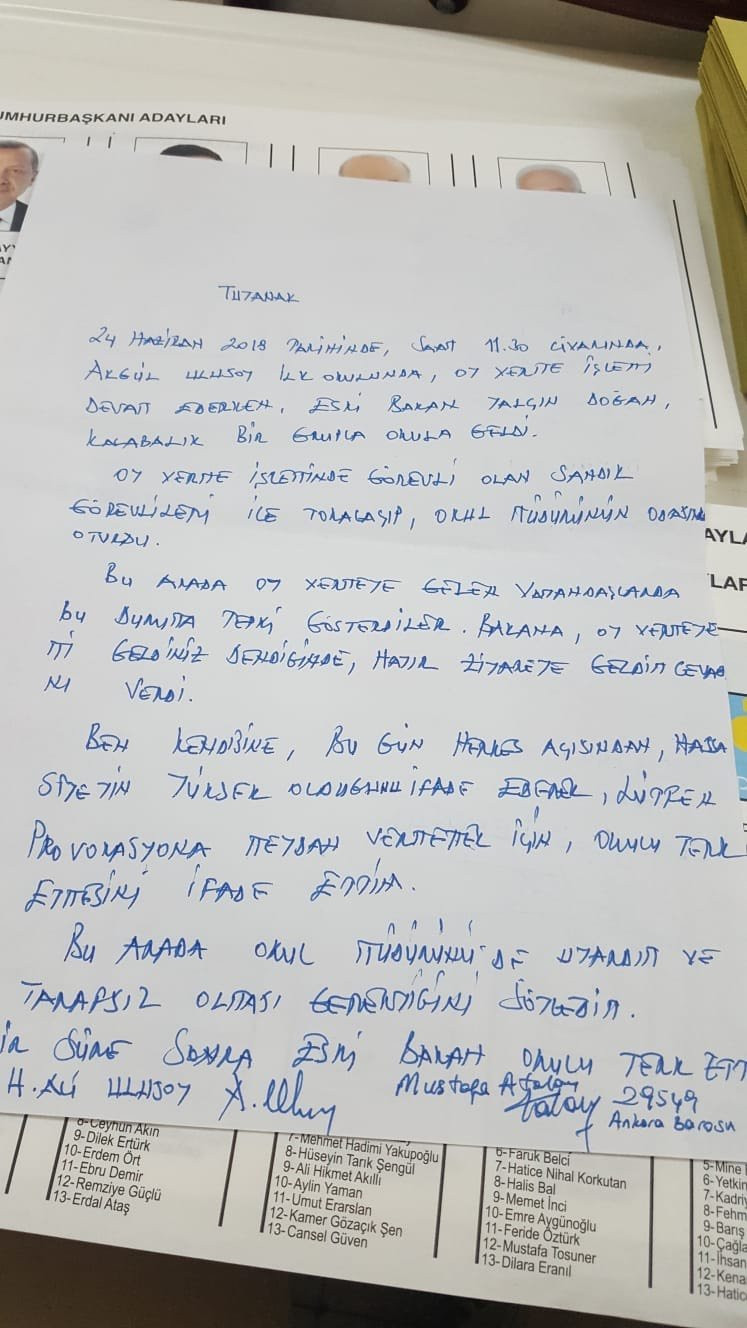 UMHURBAŞKANI ADAYLARI
TUTANAK
24 HAZİRAN 2018 TARİHİNDE, SAAT 11.30 CİVARINDA,
AKGÜL ULUSOY İLKOKULUNDA, OY VERME İŞLEMİ
DEVAM EDERKEN, ESKİ BAKAN YALÇIN DOĞAN,
KALABALIK BİR GRUPLA OKULA GELDİ.
OY VERME İŞLEMİNDE GÖREVLİ OLAN SANDIK
GÖREVLİLERİ İLE TOKALAŞIP, OKUL MÜDÜRÜNÜN ODASINA
OTURDU.
BU ARADA OY VERMEYE GELEN VATANDAŞLARDA
BU DURUMA TEPKİ GÖSTERDİLER. BAKANA, OY VERMEYE
Mİ GELDİNİZ DENDİĞİNDE, HATIR ZİYARETE GELDİM CEVABI
NI VERDİ.
BEN KENDİSİNE, BU GÜN HERKES AÇISINDAN, HASSA
SİYETİN YÜKSEK OLDUĞUNU İFADE EDEREK, LÜTFEN
PROVOKASYONA MEYDAN VERMEMEK İÇİN, OKULU TERK
ETMESİNİ İFADE ETTİM.
BU ARADA OKUL MÜDÜRÜNÜ DE UYARDIM VE
TARAFSIZ OLMASI GEREKTİĞİNİ SÖYLEDİM.
İR SÜRE SONRA ESKİ BAKAN OKULU TERK ETT
H. ALİ ULUSOY
Mustafa Atalay
Atalay 29549
Ankara Barosu
AYLA
LAR
8-Ceyhun Akın
9-Dilek Ertürk
10-Erdem Ört
11-Ebru Demir
12-Remziye Güçlü
13-Erdal Ataş
7-Mehmet Hadimi Yakupoğlu
8-Hüseyin Tarık Şengül
9-Ali Hikmet Akıllı
10-Aylin Yaman
11-Umut Erarslan
12-Kamer Gözaçık Şen
13-Cansel Güven
6-Faruk Belci
7-Hatice Nihal Korkutan
8-Halis Bal
9-Memet İnci
10-Emre Aygünoğlu
11-Feride Öztürk
12-Mustafa Tosuner
13-Dilara Eranıl
5-Mine
6-Yetkin
7-Kadriy
8-Fehm
9-Barış
10-Çağla
11-İhsan
12-Kena
13-Hatic